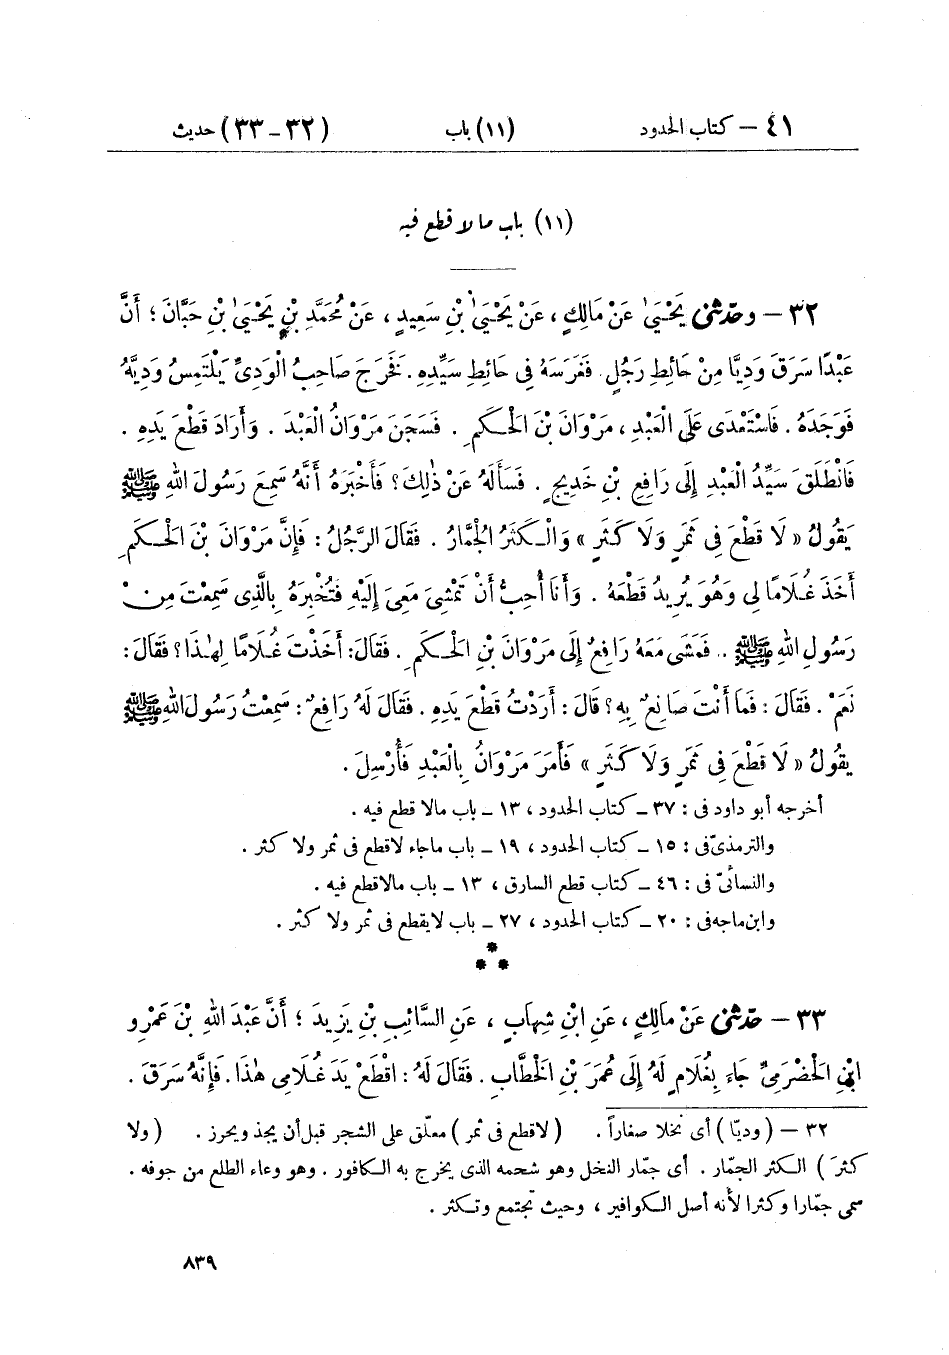 ٤١ – كتاب الحدود (١١) باب (٣٢ – ٣٣) حديث
(١١) باب ما لا قطع فيه
٣٢ – وحَدَّثَنِي يَحْيَىٰ عَنْ مَالِكٍ، عَنْ يَحْيَىٰ بْنِ سَعِيدٍ، عَنْ مُحَمَّدِ بْنِ يَحْيَىٰ بْنِ حَبَّانَ؛ أَنَّ
عَبْدًا سَرَقَ وَدِيًّا مِنْ حَائِطِ رَجُلٍ. فَغَرَسَهُ فِي حَائِطِ سَيِّدِهِ. فَخَرَجَ صَاحِبُ الْوَدِيِّ يَلْتَمِسُ وَدِيَّهُ
فَوَجَدَهُ. فَاسْتَعْدَى عَلَى الْعَبْدِ، مَرْوَانَ بْنَ الْحَكَمِ. فَسَجَنَ مَرْوَانُ الْعَبْدَ. وَأَرَادَ قَطْعَ يَدِهِ.
فَانْطَلَقَ سَيِّدُ الْعَبْدِ إِلَى رَافِعِ بْنِ خَدِيجٍ. فَسَأَلَهُ عَنْ ذٰلِكَ؟ فَأَخْبَرَهُ أَنَّهُ سَمِعَ رَسُولَ اللهِ ﷺ
يَقُولُ «لَا قَطْعَ فِي ثَمَرٍ وَلَا كَثَرٍ» وَالْكَثَرُ الْجُمَّارُ. فَقَالَ الرَّجُلُ: فَإِنَّ مَرْوَانَ بْنَ الْحَكَمِ
أَخَذَ غُلَامًا لِي وَهُوَ يُرِيدُ قَطْعَهُ. وَأَنَا أُحِبُّ أَنْ تَمْشِيَ مَعِيَ إِلَيْهِ فَتُخْبِرَهُ بِالَّذِي سَمِعْتَ مِنْ
رَسُولِ اللهِ ﷺ.. فَمَشَى مَعَهُ رَافِعٌ إِلَى مَرْوَانَ بْنِ الْحَكَمِ. فَقَالَ: أَخَذْتَ غُلَامًا لِهٰذَا؟ فَقَالَ:
نَعَمْ. فَقَالَ: فَمَا أَنْتَ صَانِعٌ بِهِ؟ قَالَ: أَرَدْتُ قَطْعَ يَدِهِ. فَقَالَ لَهُ رَافِعٌ: سَمِعْتُ رَسُولَ اللهِ ﷺ
يَقُولُ «لَا قَطْعَ فِي ثَمَرٍ وَلَا كَثَرٍ» فَأَمَرَ مَرْوَانُ بِالْعَبْدِ فَأُرْسِلَ.
أخرجه أبو داود في: ٣٧ – كتاب الحدود، ١٣ – باب مالا قطع فيه.
والترمذيّ في: ١٥ – كتاب الحدود، ١٩ – باب ماجاء لاقطع في ثمر ولا كثر.
والنسائيّ في: ٤٦ – كتاب قطع السارق، ١٣ – باب مالاقطع فيه.
وابن ماجه في: ٢٠ – كتاب الحدود، ٢٧ – باب لايقطع في ثمر ولا كثر.
*
* *
٣٣ – حَدَّثَنِي عَنْ مَالِكٍ، عَنِ ابْنِ شِهَابٍ، عَنِ السَّائِبِ بْنِ يَزِيدَ؛ أَنَّ عَبْدَ اللهِ بْنَ عَمْرِو
ابْنِ الْحَضْرَمِيِّ جَاءَ بِغُلَامٍ لَهُ إِلَى عُمَرَ بْنِ الْخَطَّابِ. فَقَالَ لَهُ: اقْطَعْ يَدَ غُلَامِي هٰذَا. فَإِنَّهُ سَرَقَ.
٣٢ – (وديّا) أي نخلا صغاراً. (لاقطع في ثمر) معلّق على الشجر قبل أن يجذ ويحرز. (ولا
كثرَ) الكثر الجمّار. أي جمّار النخل وهو شحمه الذي يخرج به الكافور. وهو وعاء الطلع من جوفه.
سمي جمّارا وكثرا لأنه أصل الكوافير، وحيث تجتمع وتكثر.
٨٣٩